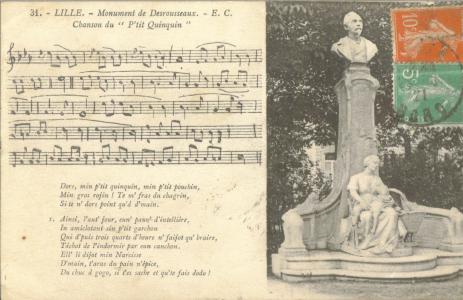 31. - LILLE. - Monument de Desrousseaux. - E. C.
Chanson du " P'tit Quinquin "
Dors, min p'tit quinquin, min p'tit pouchin,
Min gros rojin ! Te m' fras du chagrin,
Si te n' dors point qu'à d'main.
1. Ainsi, l'aut' jour, eun' pauv' d'intellière,
In amiclotant sin p'tit garchon
Qui d'puis trois quarts d'heure n' faijot qu' braire,
Tâchot de l'indormir par eun canchon.
Ell' li dijot min Narcisse
D'main, t'aras du pain n'épice,
Du chuc à gogo, si t'es sache et qu'te fais dodo !